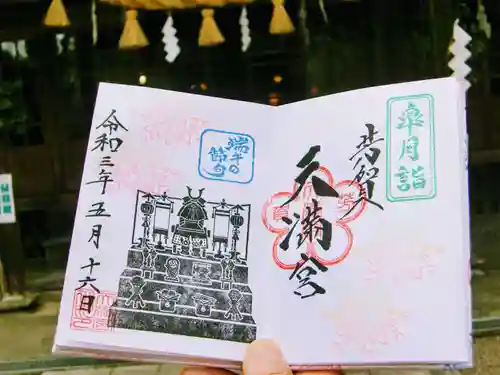 皐月詣
芳賀
天満宮
端午の
節句
令和三年五月十六日